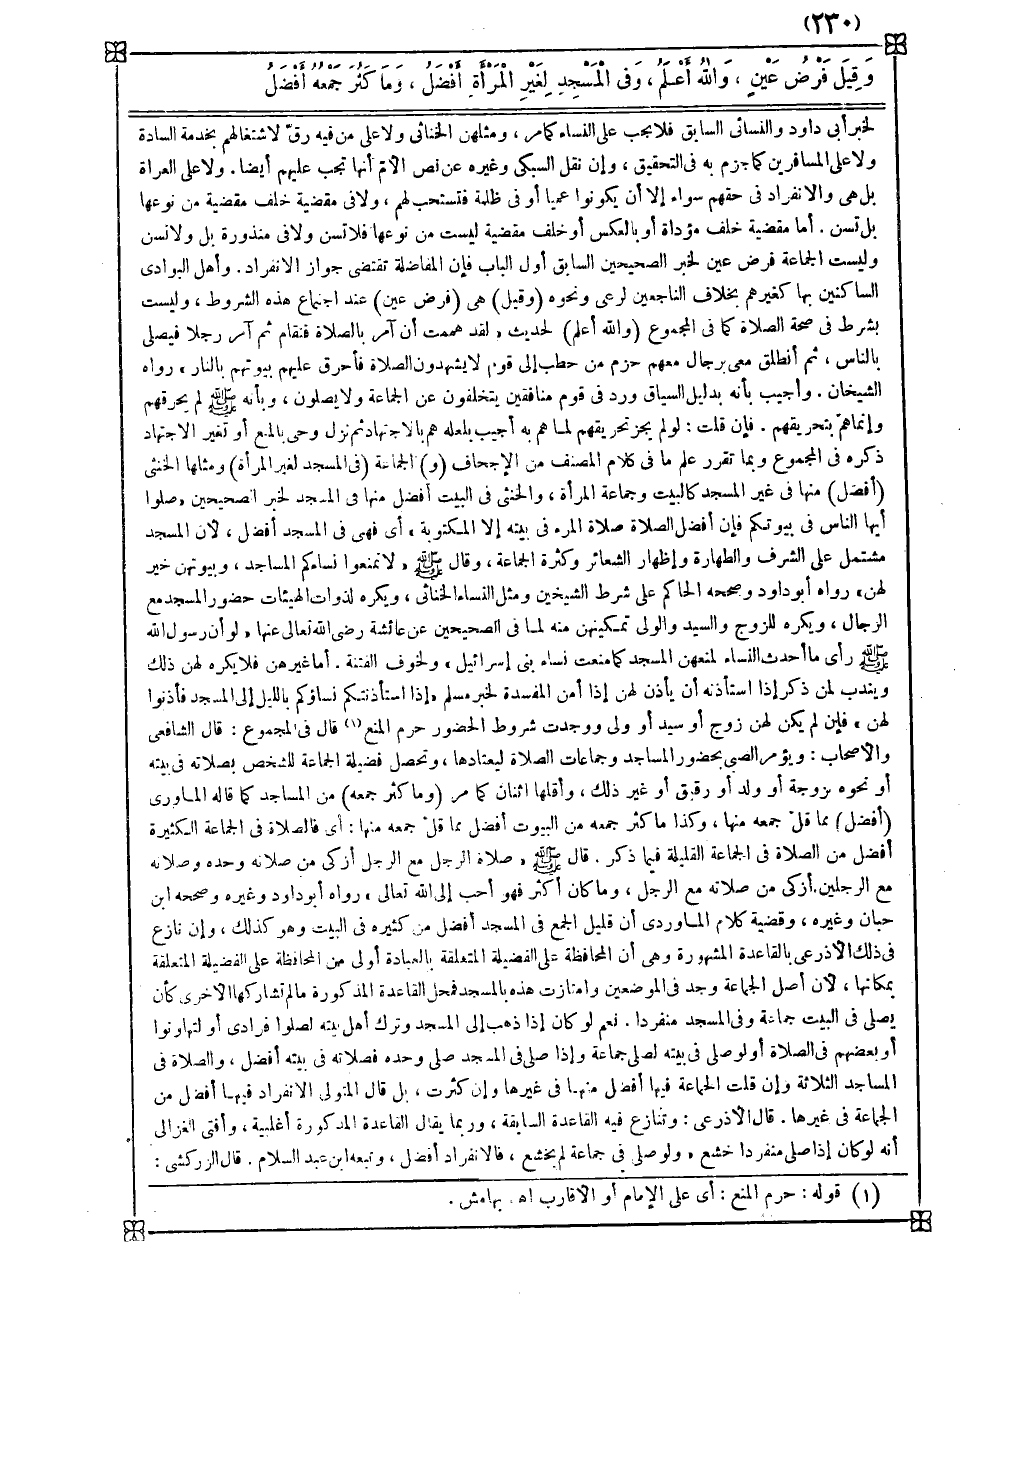 (٢٣٠)
وَقِيلَ فَرْضُ عَيْنٍ ، وَاللهُ أَعْلَمُ ، وَفِى الْمَسْجِدِ لِغَيْرِ الْمَرْأَةِ أَفْضَلُ ، وَمَا كَثُرَ جَمْعُهُ أَفْضَلُ
لخبر أبى داود والنسائى السابق فلا يجب على النساء كما مر ، ومثلهن الخناثى ولا على من فيه رقّ لاشتغالهم بخدمة السادة
ولا على المسافرين كما جزم به فى التحقيق ، وإن نقل السبكى وغيره عن نص الأم أنها تجب عليهم أيضا . ولا على العراة
بل هى والانفراد فى حقهم سواء إلا أن يكونوا عميا أو فى ظلمة فتستحب لهم ، ولا فى مقضية خلف مقضية من نوعها
بل تسن . أما مقضية خلف مؤداة أو بالعكس أو خلف مقضية ليست من نوعها فلا تسن ولا فى منذورة بل ولا تسن
وليست الجماعة فرض عين لخبر الصحيحين السابق أول الباب فإن المفاضلة تقتضى جواز الانفراد . وأهل البوادى
الساكنين بها كغيرهم بخلاف الناجعين لرعى ونحوه (وقيل) هى (فرض عين) عند اجتماع هذه الشروط ، وليست
بشرط فى صحة الصلاة كما فى المجموع (والله أعلم) لحديث « لقد هممت أن آمر بالصلاة فتقام ثم آمر رجلا فيصلى
بالناس ، ثم أنطلق معى برجال معهم حزم من حطب إلى قوم لا يشهدون الصلاة فأحرق عليهم بيوتهم بالنار » رواه
الشيخان . وأجيب بأنه بدليل السياق ورد فى قوم منافقين يتخلفون عن الجماعة ولا يصلون ، وبأنه ﷺ لم يحرقهم
وإنما همّ بتحريقهم . فإن قلت : لو لم يجز تحريقهم لما هم به أجيب بلعله هم بالاجتهاد ثم نزل وحى بالمنع أو تغير الاجتهاد
ذكره فى المجموع وبما تقرر علم ما فى كلام المصنف من الإجحاف (و) الجماعة (فى المسجد لغير المرأة) ومثلها الخنثى
(أفضل) منها فى غير المسجد كالبيت وجماعة المرأة ، والخنثى فى البيت أفضل منها فى المسجد لخبر الصحيحين «صلوا
أيها الناس فى بيوتكم فإن أفضل الصلاة صلاة المرء فى بيته إلا المكتوبة » أى فهى فى المسجد أفضل ، لأن المسجد
مشتمل على الشرف والطهارة وإظهار الشعائر وكثرة الجماعة ، وقال ﷺ « لا تمنعوا نساءكم المساجد ، وبيوتهن خير
لهن» رواه أبوداود وصححه الحاكم على شرط الشيخين ومثل النساء الخناثى ، ويكره لذوات الهيئات حضور المسجد مع
الرجال ، ويكره للزوج والسيد والولى تمكينهن منه لما فى الصحيحين عن عائشة رضى الله تعالى عنها « لو أن رسول الله
ﷺ رأى ما أحدث النساء لمنعهن المسجد كما منعت نساء بنى إسرائيل » ولخوف الفتنة . أما غيرهن فلا يكره لهن ذلك
ويندب لمن ذكر إذا استأذنه أن يأذن لهن إذا أمن المفسدة لخبر مسلم «إذا استأذنتكم نساؤكم بالليل إلى المسجد فأذنوا
لهن » فإن لم يكن لهن زوج أو سيد أو ولى ووجدت شروط الحضور حرم المنع (١) قال فى المجموع : قال الشافعى
والأصحاب : ويؤمر الصبى بحضور المساجد وجماعات الصلاة ليعتادها ، وتحصل فضيلة الجماعة للشخص بصلاته فى بيته
أو نحوه بزوجة أو ولد أو رقيق أو غير ذلك ، وأقلها اثنان كما مر (وما كثر جمعه) من المساجد كما قاله الماوردى
(أفضل) مما قلّ جمعه منها ، وكذا ما كثر جمعه من البيوت أفضل مما قلّ جمعه منها : أى فالصلاة فى الجماعة الكثيرة
أفضل من الصلاة فى الجماعة القليلة فيما ذكر . قال ﷺ « صلاة الرجل مع الرجل أزكى من صلاته وحده وصلاته
مع الرجلين أزكى من صلاته مع الرجل ، وما كان أكثر فهو أحب إلى الله تعالى » رواه أبوداود وغيره وصححه ابن
حبان وغيره ، وقضية كلام الماوردى أن قليل الجمع فى المسجد أفضل من كثيره فى البيت وهو كذلك ، وإن نازع
فى ذلك الأذرعى بالقاعدة المشهورة وهى أن المحافظة على الفضيلة المتعلقة بالعبادة أولى من المحافظة على الفضيلة المتعلقة
بمكانها ، لأن أصل الجماعة وجد فى الموضعين وامتازت هذه بالمسجد فمحل القاعدة المذكورة مالم تشاركها الأخرى كأن
يصلى فى البيت جماعة وفى المسجد منفردا . نعم لو كان إذا ذهب إلى المسجد وترك أهل بيته لصلوا فرادى أو لتهاونوا
أو بعضهم فى الصلاة أو لو صلى فى بيته لصلى جماعة وإذا صلى فى المسجد صلى وحده فصلاته فى بيته أفضل ، والصلاة فى
المساجد الثلاثة وإن قلت الجماعة فيها أفضل منها فى غيرها وإن كثرت ، بل قال المتولى الانفراد فيها أفضل من
الجماعة فى غيرها . قال الأذرعى : وتنازع فيه القاعدة السابقة ، وربما يقال القاعدة المذكورة أغلبية ، وأفتى الغزالى
أنه لو كان إذا صلى منفردا خشع ، ولو صلى فى جماعة لم يخشع ، فالانفراد أفضل ، وتبعه ابن عبد السلام . قال الزركشى :
(١) قوله : حرم المنع : أى على الإمام أو الأقارب اهـ بهامش .